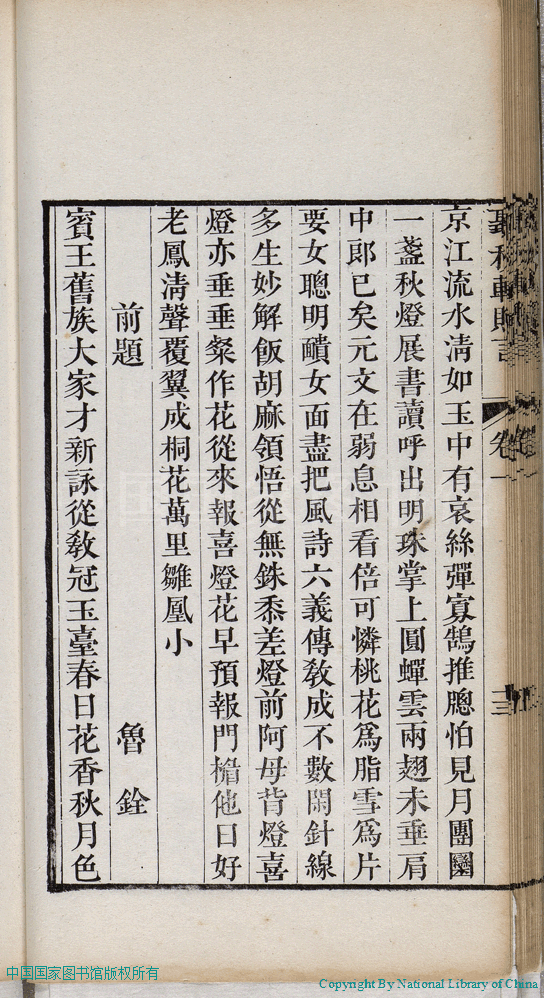 聽秋軒贈言 卷一 十三
京江流水清如玉中有哀絲彈寡鵠推牕怕見月團圞
一盞秋燈展書讀呼出明珠掌上圓蟬雲兩翅未垂肩
中郎已矣元文在弱息相看倍可憐桃花爲脂雪爲片
要女聰明靧女面盡把風詩六義傳敎成不數閑針線
多生妙解飯胡麻領悟從無銖黍差燈前阿母背燈喜
燈亦垂垂粲作花從來報喜燈花早預報門楣他日好
老鳳清聲覆翼成桐花萬里雛凰小
前題 魯銓
賓王舊族大家才新詠從敎冠玉臺春日花香秋月色
中国国家图书馆版权所有
Copyright By National Library of China